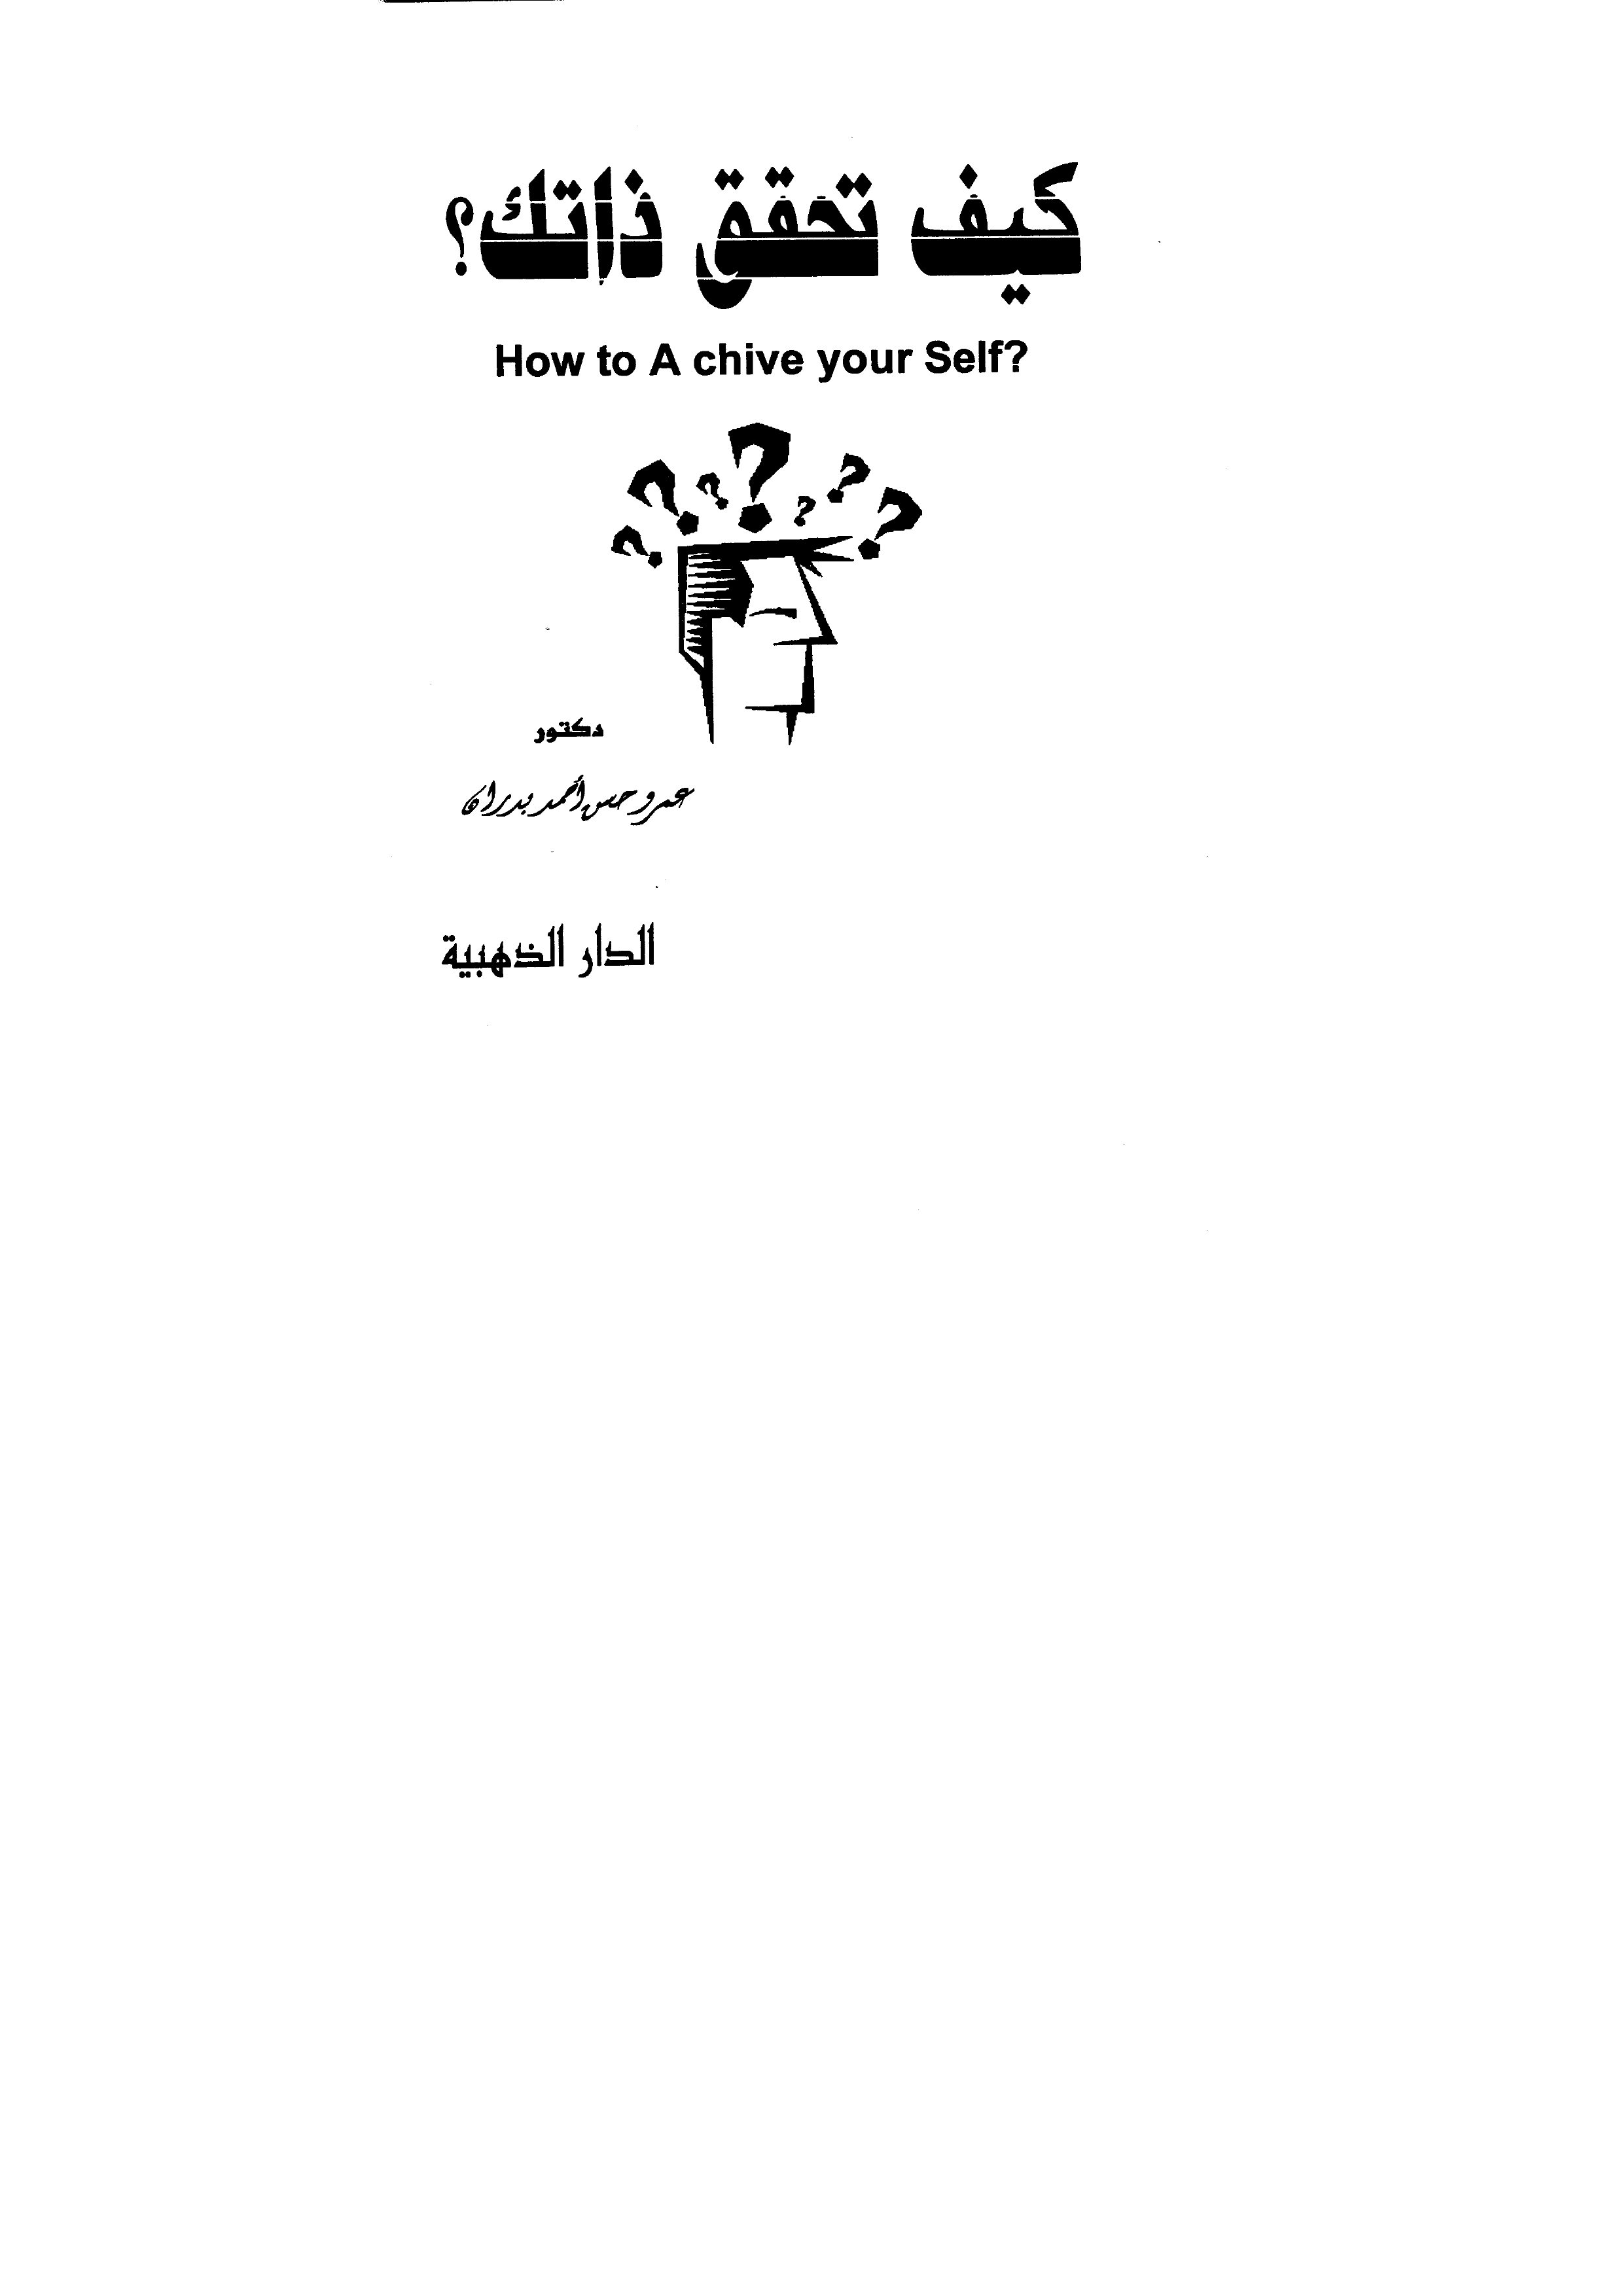 كيف تحقق ذاتك؟
How to A chive your Self?
دكتور
عمرو حسن أحمد بدران
الدار الذهبية